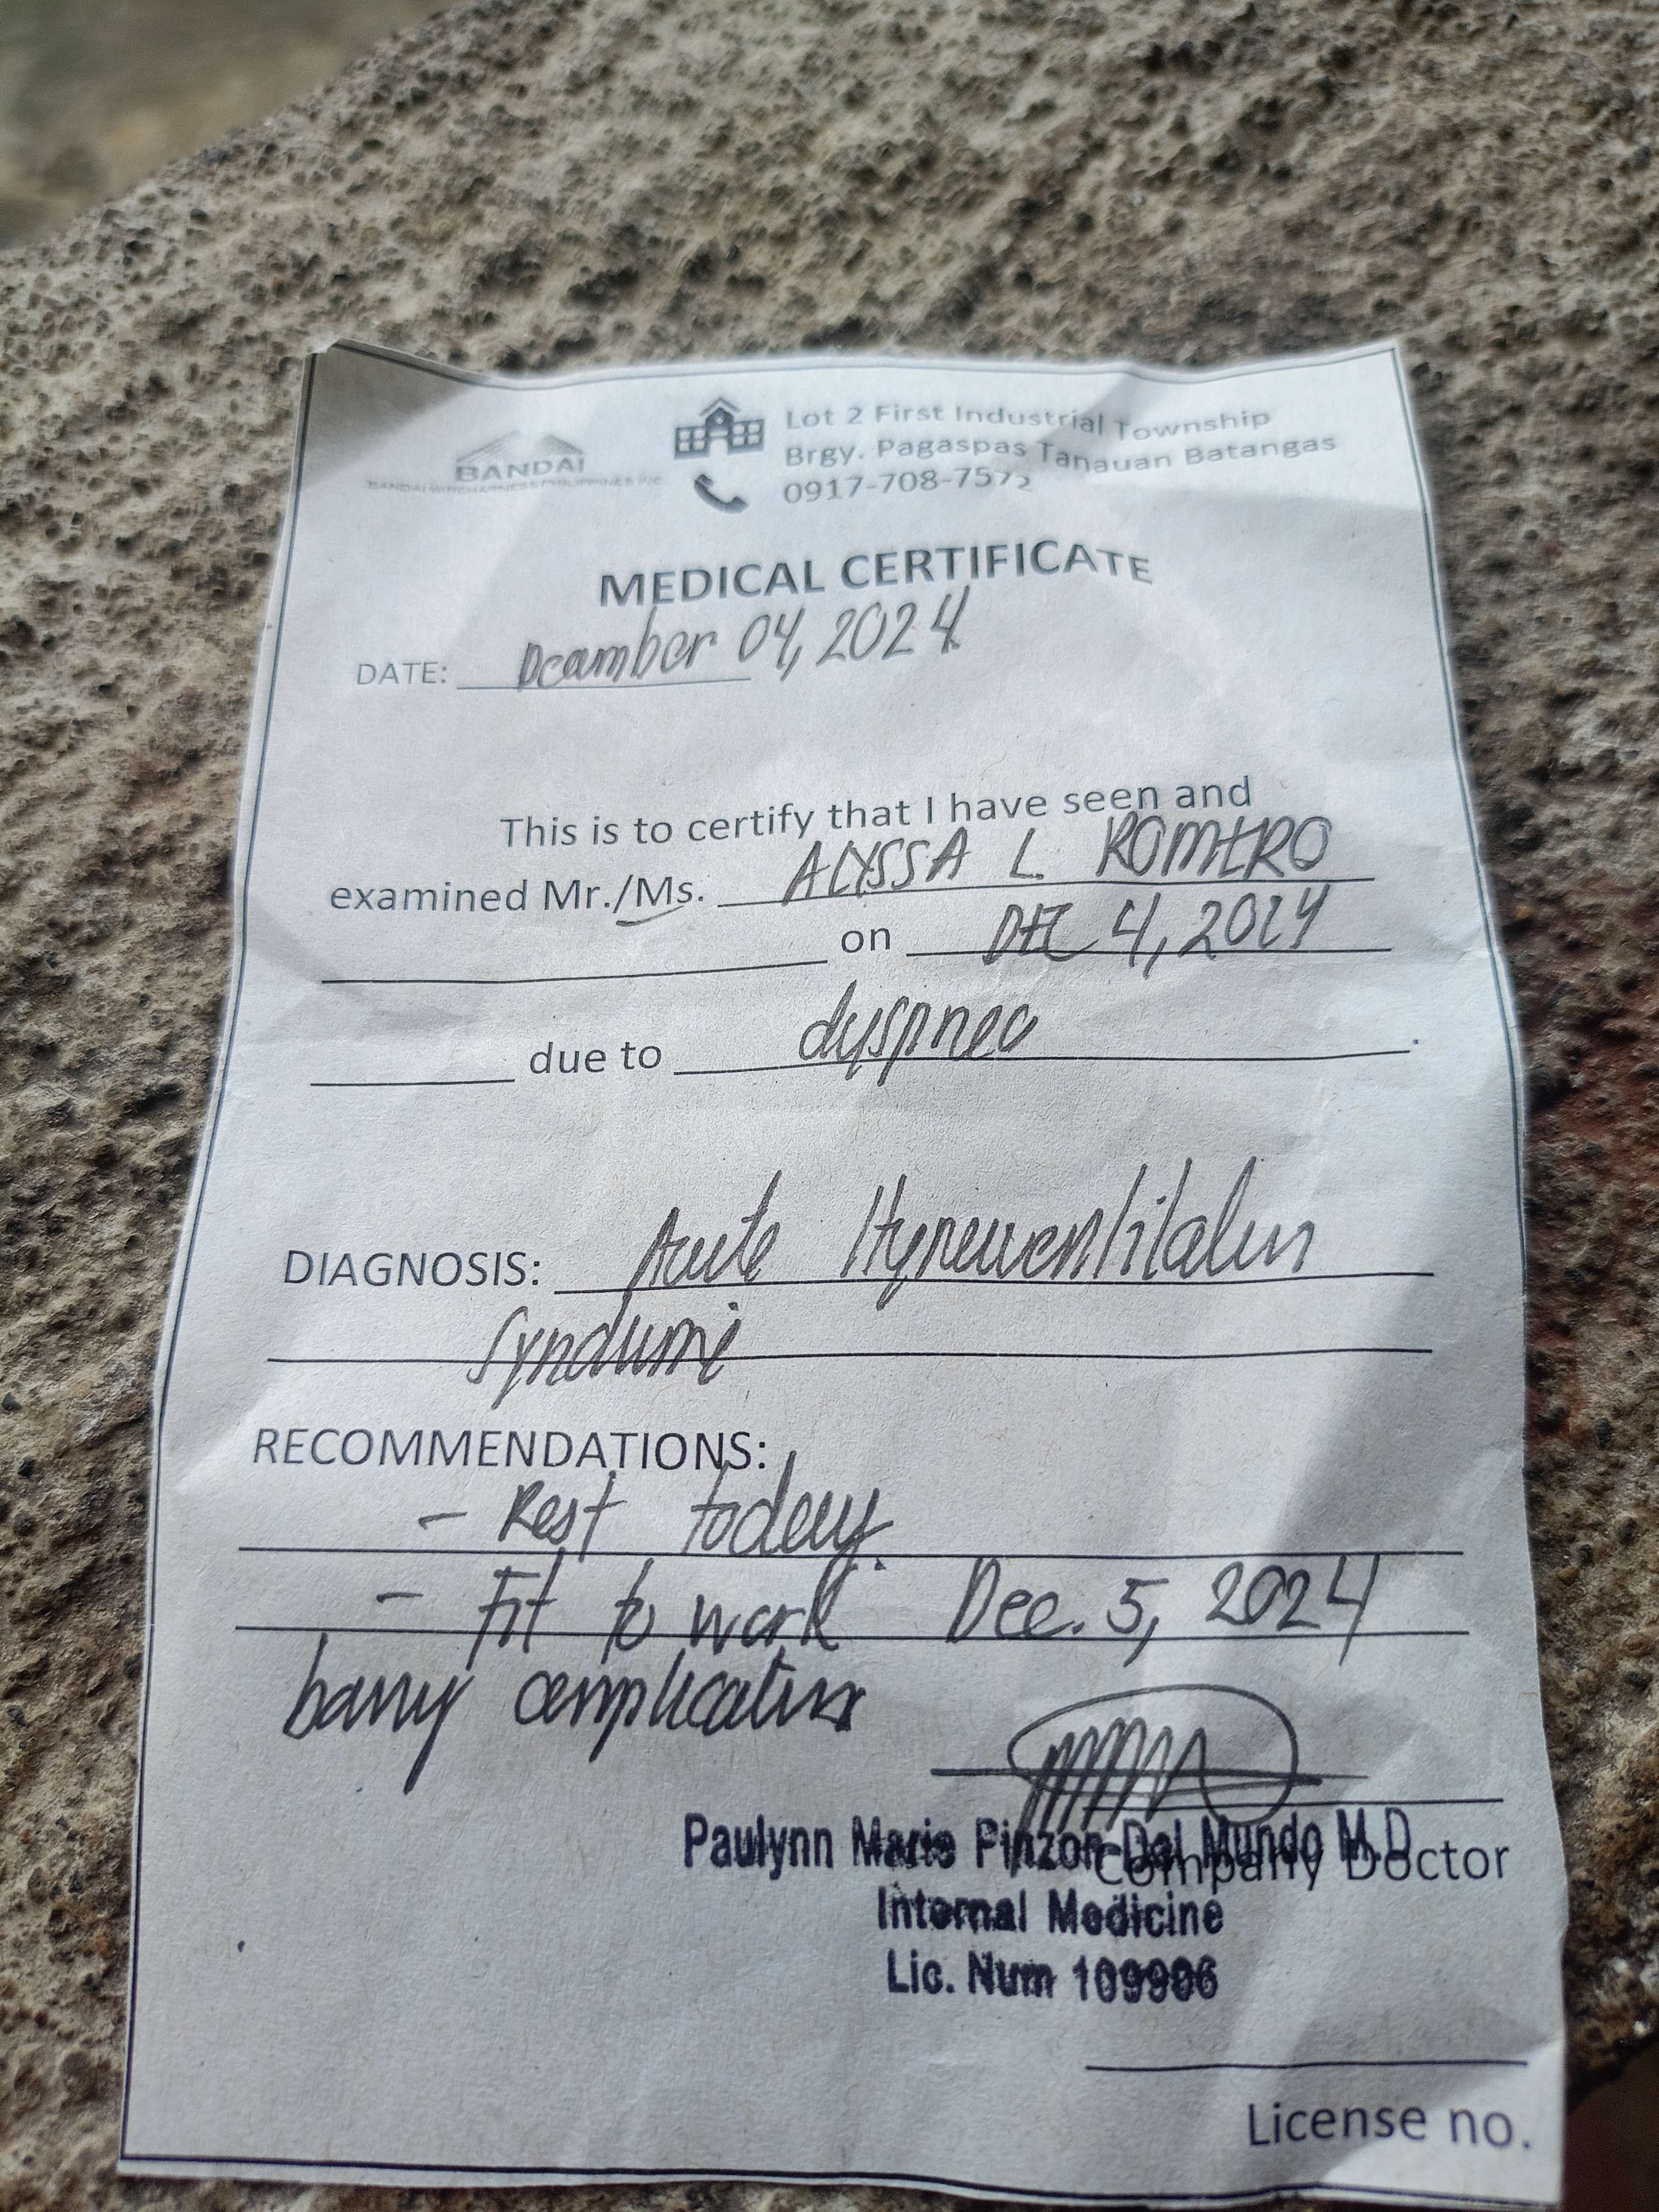 BANDAI
BANDAI WIREHARNESS PHILIPPINES INC.
Lot 2 First Industrial Township
Brgy. Pagaspas Tanauan Batangas
0917-708-7572
MEDICAL CERTIFICATE
DATE: December 04, 2024
This is to certify that I have seen and
examined Mr./Ms. ALYSSA L. ROMERO
on DEC 4, 2024
due to dyspnea .
DIAGNOSIS: Acute Hyperventilation
Syndrome
RECOMMENDATIONS:
- Rest today.
- Fit to work Dec. 5, 2024
barring complications
Paulynn Marie Pinzon-Del Mundo M.D
Company Doctor
Internal Medicine
Lic. Num 109906
License no.